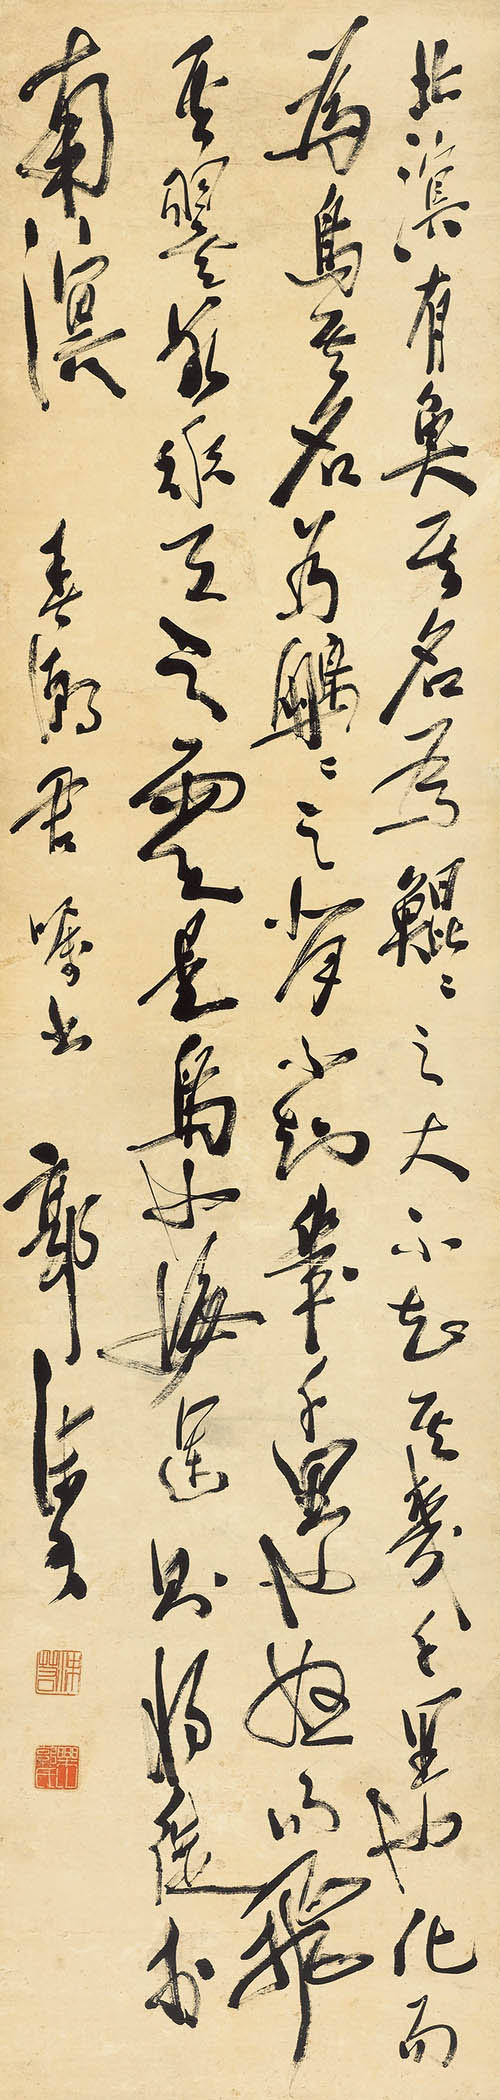 北溟有魚其名為鯤〻之大不知其幾千里也化而
為鳥其名為鵬〻之背不知幾千里也怒而飛
其翼若垂天之雲是鳥也海運則將徙於
南溟
春潮君囑書 郭沫若
沫若